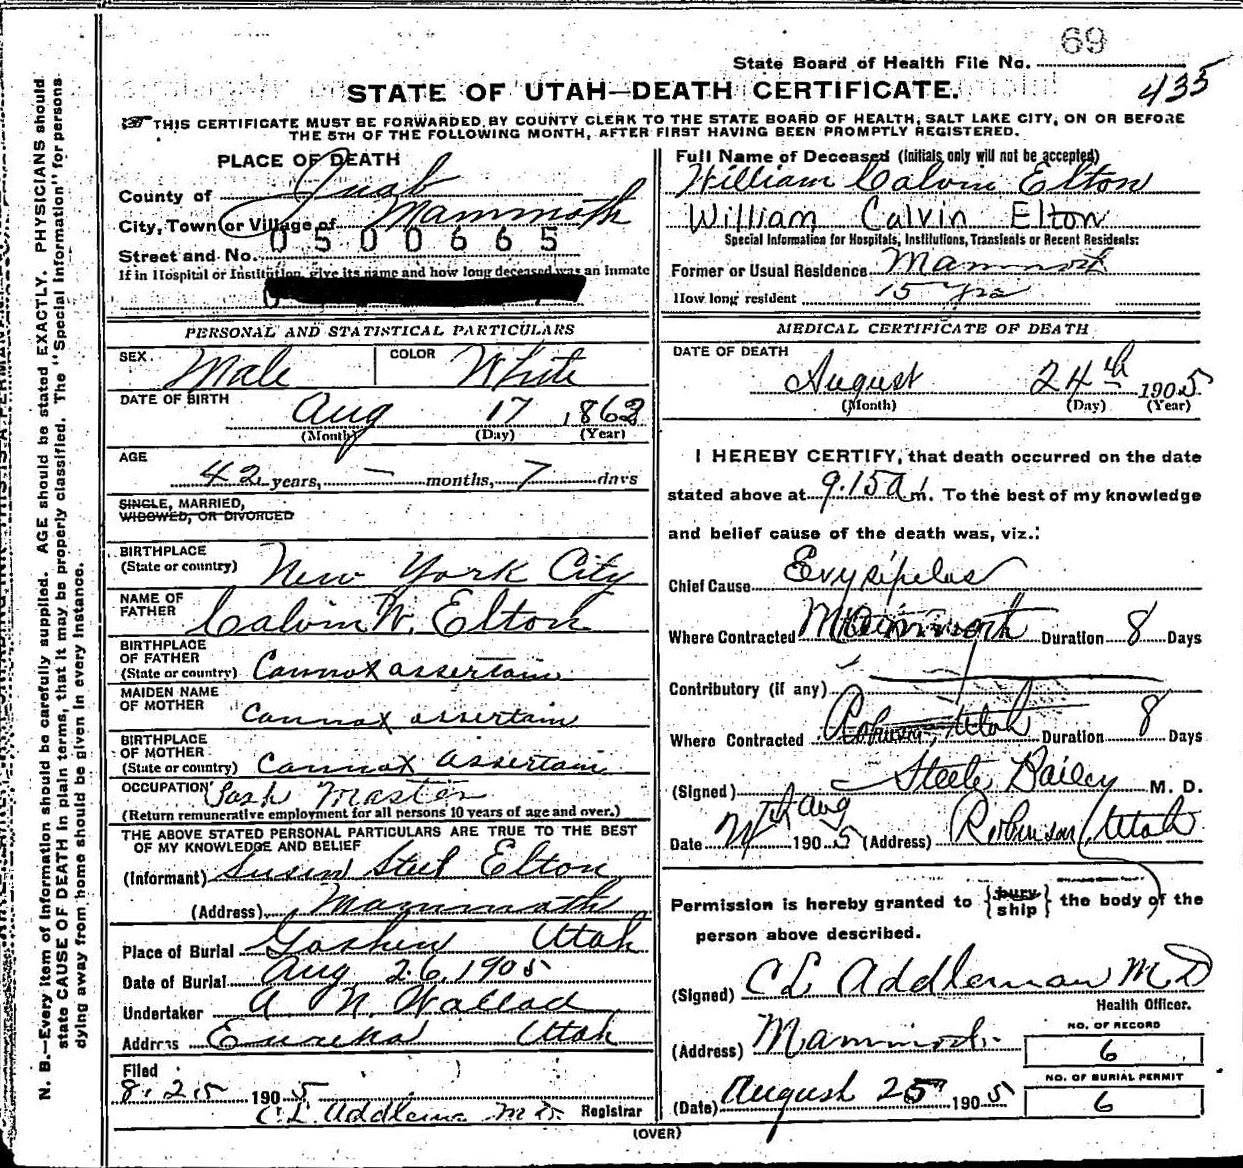 69
State Board of Health File No.
435
STATE OF UTAH—DEATH CERTIFICATE.
THIS CERTIFICATE MUST BE FORWARDED BY COUNTY CLERK TO THE STATE BOARD OF HEALTH, SALT LAKE CITY, ON OR BEFORE
THE 5TH OF THE FOLLOWING MONTH, AFTER FIRST HAVING BEEN PROMPTLY REGISTERED.
PLACE OF DEATH
County of Juab
City, Town or Village of Mammoth
Street and No. 0500665
If in Hospital or Institution, give its name and how long deceased was an Inmate
PERSONAL AND STATISTICAL PARTICULARS
SEX. Male COLOR White
DATE OF BIRTH Aug 17 1863
(Month) (Day) (Year)
AGE 42 years, — months, 7 days
SINGLE, MARRIED,
WIDOWED, OR DIVORCED
BIRTHPLACE
(State or country) New York City
NAME OF
FATHER Calvin W. Elton
BIRTHPLACE
OF FATHER
(State or country) Cannot assertain
MAIDEN NAME
OF MOTHER Cannot assertain
BIRTHPLACE
OF MOTHER
(State or country) Cannot assertain
OCCUPATION Master
(Return remunerative employment for all persons 10 years of age and over.)
THE ABOVE STATED PERSONAL PARTICULARS ARE TRUE TO THE BEST
OF MY KNOWLEDGE AND BELIEF
(Informant) Susan Steel Elton
(Address) Mammoth
Place of Burial Goshen Utah
Date of Burial Aug 26, 1905
Undertaker A. N. Wallace
Address Eureka Utah
Filed
8.25 1905
C. L. Addleman M.D. Registrar
(OVER)
Full Name of Deceased (Initials only will not be accepted)
William Calvin Elton
William Calvin Elton
Special Information for Hospitals, Institutions, Transients or Recent Residents:
Former or Usual Residence Mammoth
How long resident 15 yrs
MEDICAL CERTIFICATE OF DEATH
DATE OF DEATH
August 24th 1905
(Month) (Day) (Year)
I HEREBY CERTIFY, that death occurred on the date
stated above at 9.15 a m. To the best of my knowledge
and belief cause of the death was, viz.:
Chief Cause Erysipelas
Where Contracted Mammoth Duration 8 Days
Contributory (if any)
Where Contracted Robinson, Utah Duration 8 Days
(Signed) Steele Bailey M. D.
Date Aug 1905 (Address) Robinson Utah
Permission is hereby granted to {bury ship} the body of the
person above described.
(Signed) C L Addleman M D
Health Officer.
(Address) Mammoth
NO. OF RECORD
6
NO. OF BURIAL PERMIT
6
(Date) August 25 1905
N. B.—Every item of information should be carefully supplied. AGE should be stated EXACTLY. PHYSICIANS should
state CAUSE OF DEATH in plain terms, that it may be properly classified. The "Special Information" for persons
dying away from home should be given in every instance.